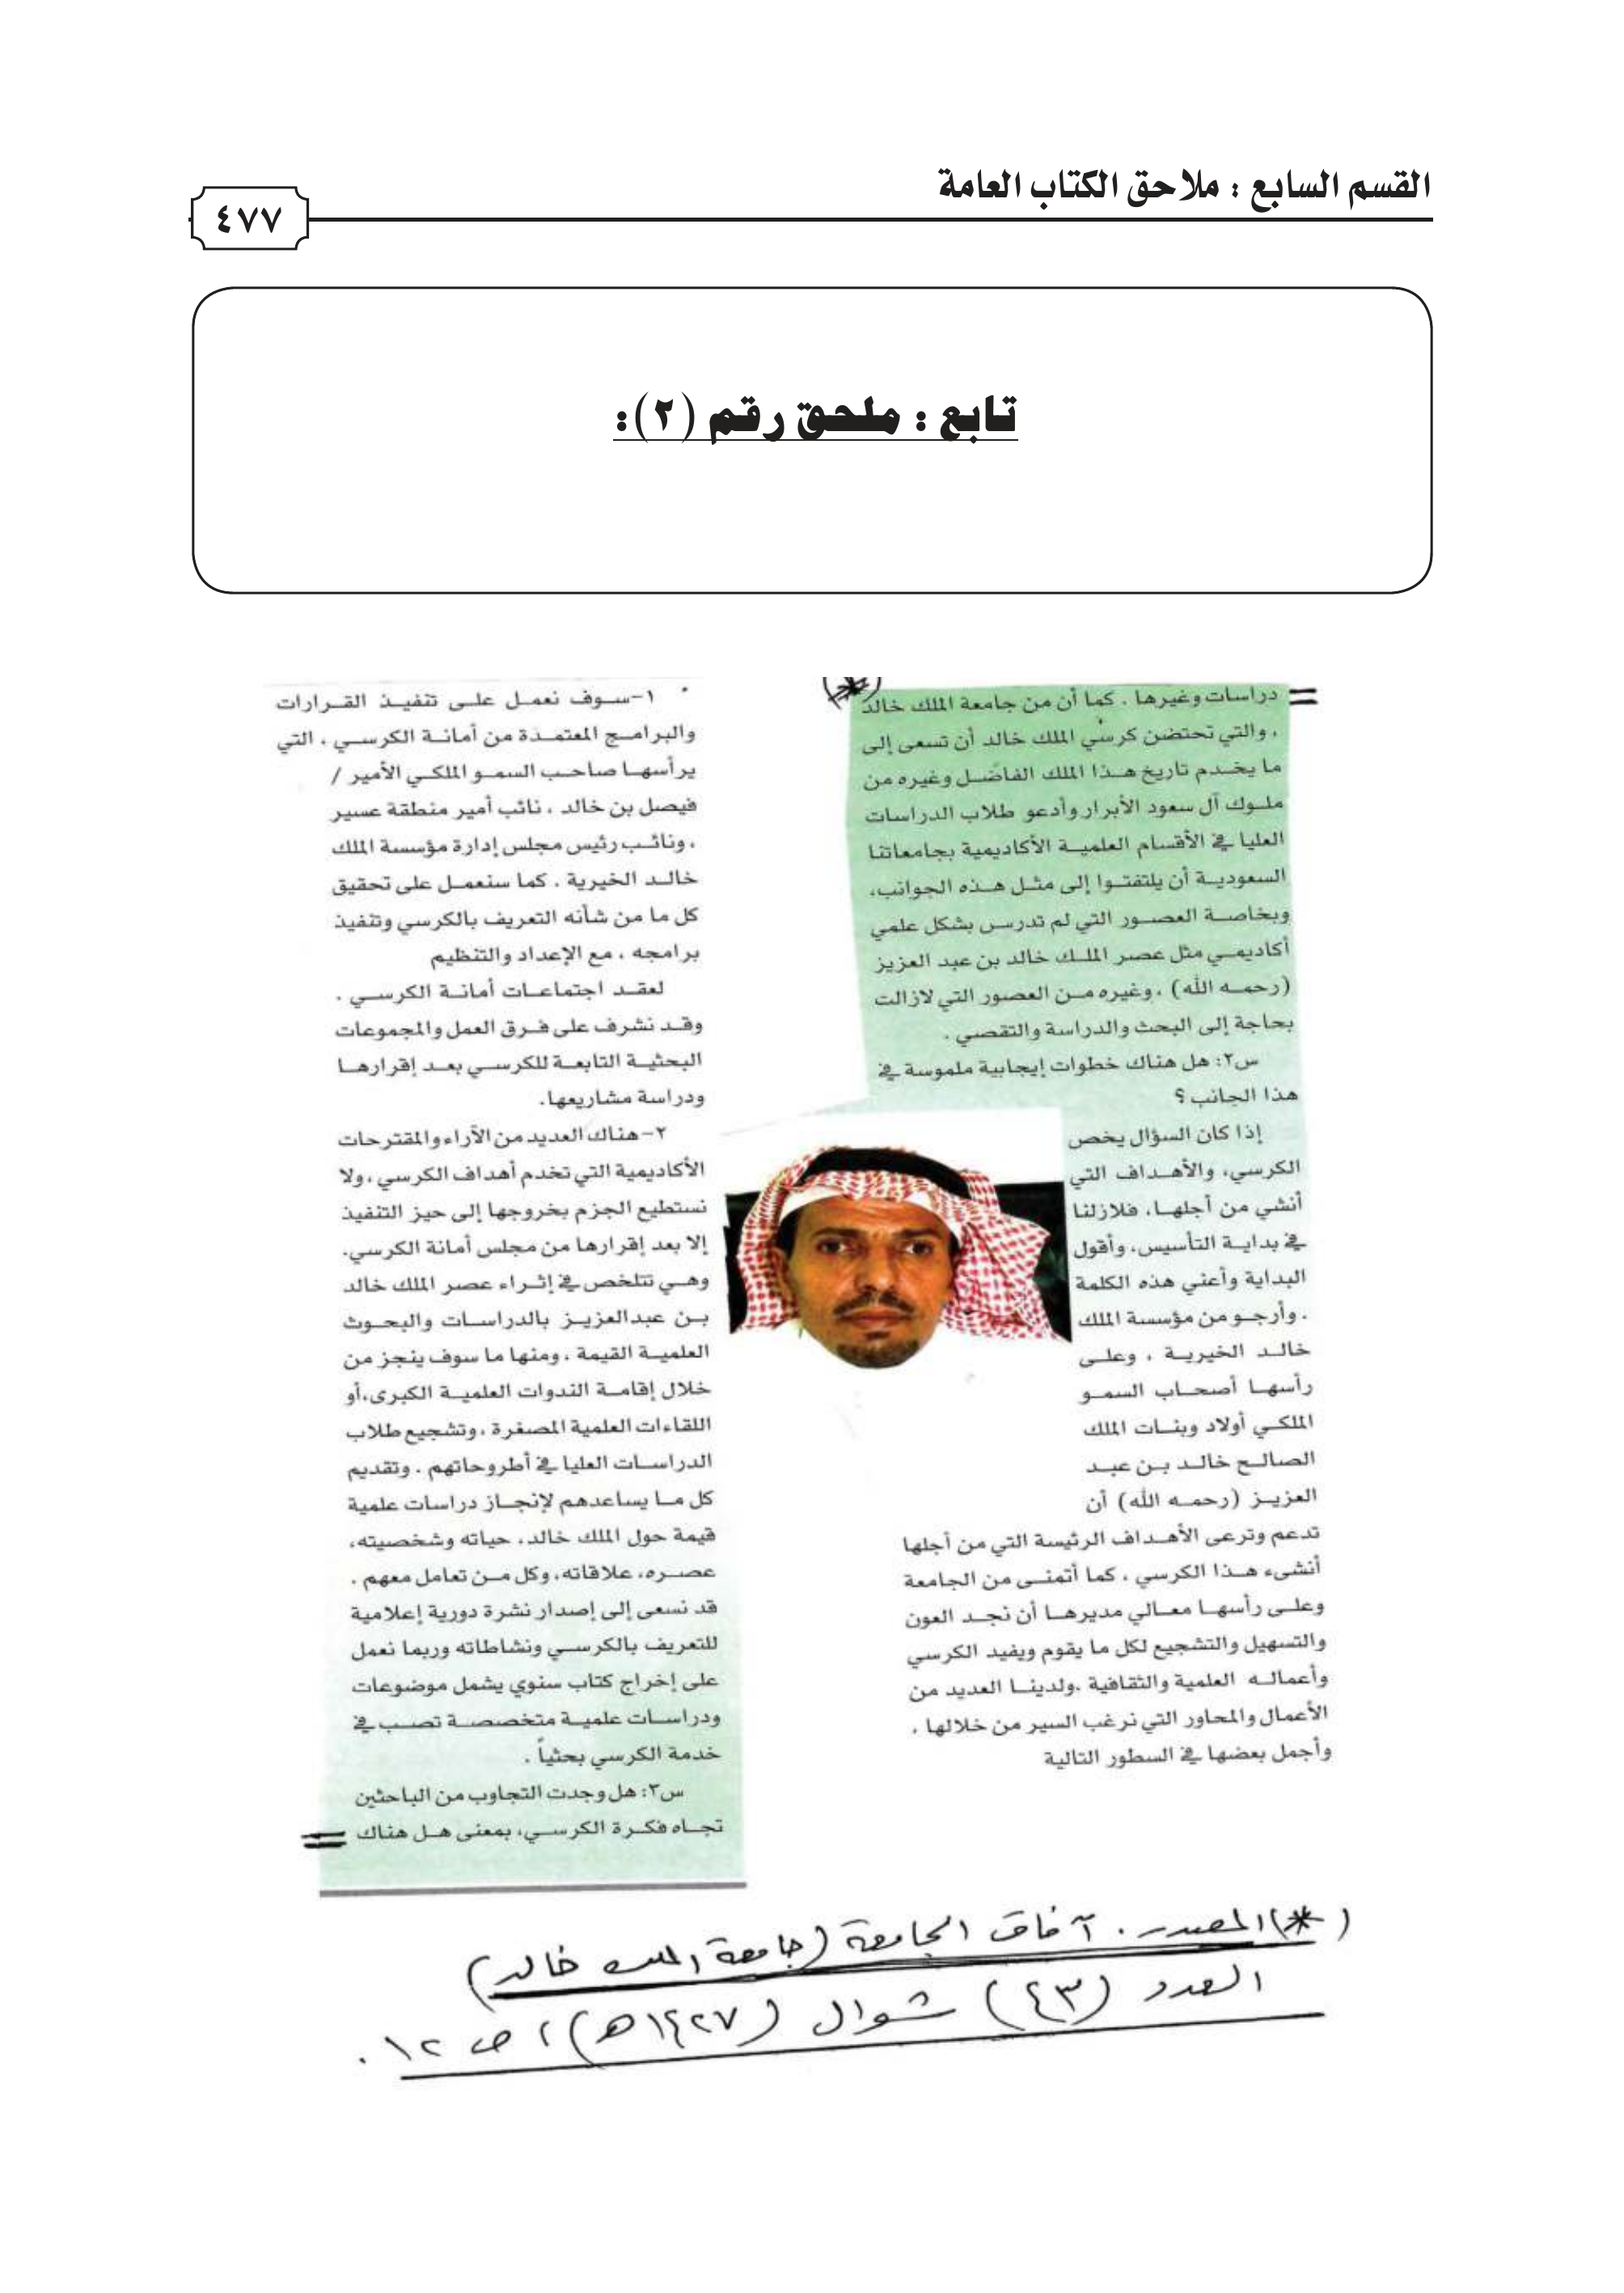 القسم السابع : ملاحق الكتاب العامة
٤٧٧
تابع : ملحق رقم (٢):
دراسات وغيرها . كما أن من جامعة الملك خالد
، والتي تحتضن كرسي الملك خالد أن تسعى إلى
ما يخدم تاريخ هذا الملك الفاضل وغيره من
ملوك آل سعود الأبرار وأدعو طلاب الدراسات
العليا في الأقسام العلمية الأكاديمية بجامعاتنا
السعودية أن يلتفتوا إلى مثل هذه الجوانب،
وبخاصة العصور التي لم تدرس بشكل علمي
أكاديمي مثل عصر الملك خالد بن عبد العزيز
(رحمه الله) ، وغيره من العصور التي لازالت
بحاجة إلى البحث والدراسة والتقصي .
س٢: هل هناك خطوات إيجابية ملموسة في
هذا الجانب ؟
إذا كان السؤال يخص
الكرسي، والأهداف التي
أنشي من أجلها، فلازلنا
في بداية التأسيس، وأقول
البداية وأعني هذه الكلمة
. وأرجو من مؤسسة الملك
خالد الخيرية ، وعلى
رأسها أصحاب السمو
الملكي أولاد وبنات الملك
الصالح خالد بن عبد
العزيز (رحمه الله) أن
تدعم وترعى الأهداف الرئيسة التي من أجلها
أنشىء هذا الكرسي ، كما أتمنى من الجامعة
وعلى رأسها معالي مديرها أن نجد العون
والتسهيل والتشجيع لكل ما يقوم ويفيد الكرسي
وأعماله العلمية والثقافية .ولدينا العديد من
الأعمال والمحاور التي نرغب السير من خلالها .
وأجمل بعضها في السطور التالية
١-سوف نعمل على تنفيذ القرارات
والبرامج المعتمدة من أمانة الكرسي ، التي
يرأسها صاحب السمو الملكي الأمير /
فيصل بن خالد ، نائب أمير منطقة عسير
، ونائب رئيس مجلس إدارة مؤسسة الملك
خالد الخيرية . كما سنعمل على تحقيق
كل ما من شأنه التعريف بالكرسي وتنفيذ
برامجه ، مع الإعداد والتنظيم
لعقد اجتماعات أمانة الكرسي .
وقد نشرف على فرق العمل والمجموعات
البحثية التابعة للكرسي بعد إقرارها
ودراسة مشاريعها.
٢-هناك العديد من الآراء والمقترحات
الأكاديمية التي تخدم أهداف الكرسي ، ولا
نستطيع الجزم بخروجها إلى حيز التنفيذ
إلا بعد إقرارها من مجلس أمانة الكرسي.
وهي تتلخص في إثراء عصر الملك خالد
بن عبدالعزيز بالدراسات والبحوث
العلمية القيمة ، ومنها ما سوف ينجز من
خلال إقامة الندوات العلمية الكبرى،أو
اللقاءات العلمية المصغرة ، وتشجيع طلاب
الدراسات العليا في أطروحاتهم . وتقديم
كل ما يساعدهم لإنجاز دراسات علمية
قيمة حول الملك خالد، حياته وشخصيته،
عصره، علاقاته، وكل من تعامل معهم .
قد نسعى إلى إصدار نشرة دورية إعلامية
للتعريف بالكرسي ونشاطاته وربما نعمل
على إخراج كتاب سنوي يشمل موضوعات
ودراسات علمية متخصصة تصب في
خدمة الكرسي بحثياً .
س٣: هل وجدت التجاوب من الباحثين
تجاه فكرة الكرسي، بمعنى هل هناك
(*) المصدر . آفاق الجامعة (جامعة الملك خالد)
العدد (٤٣) شوال (١٤٢٧هـ) ، ص ١٢ .